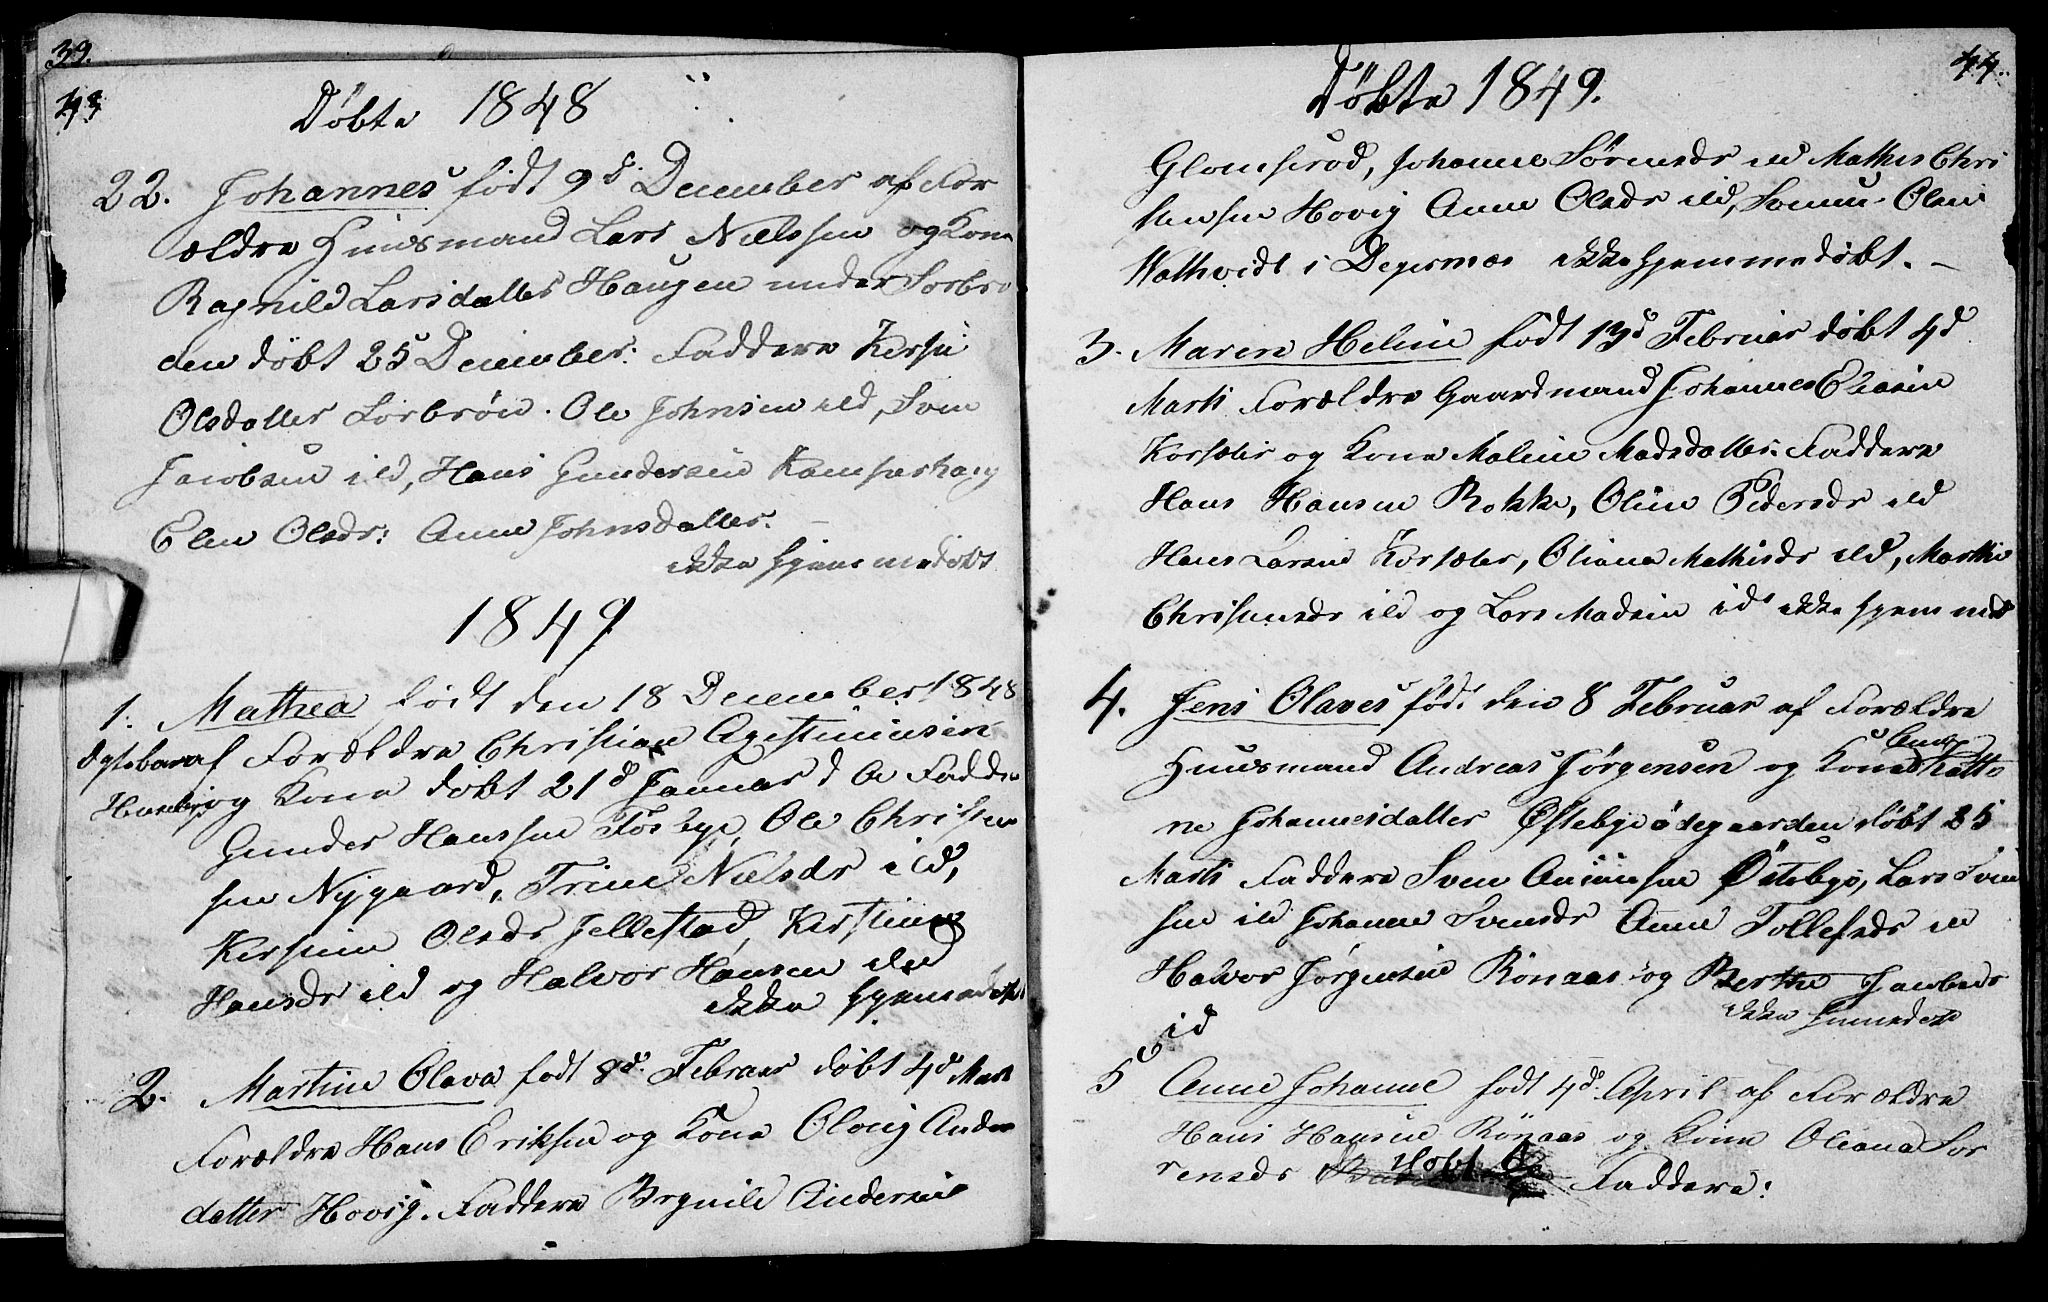 39.
43
Döbte 1848
22. Johannes födt 9d December af For
ældre Huusmand Lars Nielssen og Kone
Ragnild Larsdatter Haugen under Sorbrö
den döbt 25 December: Faddere Kersti
Olsdatter Sorbröen. Ole Johnsen ild, Sven
Jacobsen ild, Hans Gundersen
Elen Olsdr: Anne Johnsdatter. –
ikke hjemmedöbt
1849
1. Mathea födt den 18 December 1848
af Forældre Christian
og Kone döbt 21d Januar d A Fadde
Gunder Hanssen Fosbye, Ole Christen
sen Nygaard, Trine Nielsdr ild,
Kerstine Olsdr Jellestad, Kerstine
Hansdr ild og Halvor Hansen ild
ikke hjemmedöbt
2. Martine Olava födt 8d. Februar döbt 4d Marts
Forældre Hans Eriksen og Kone Oloug Anders
datter Hovig. Faddere Andersen
44.
Döbte 1849.
Glomsröd, Johanne Sörensdr ild Mathis Chri
stensen Hovig Anne Olsdr ild, Olsen
i Degernæs ikke hjemmedöbt. –
3. Maren Heline födt 13d Februar döbt 4d
Marts Forældre Gaardmand Johannes Eliasen
Korsæter og Kone Maline Madsdatter. Faddere
Hans Hansen Rokke, Oline Pedersdr ild
Hans Larsen Korsæter, Oliana Mathisdr ild, Marthe
Christensdr ild og Lars Madsen id ikke hjemmed
4. Jens Olaves föd. den 8 Februar af Forældre
Huusmand Andreas Jørgensen og Kone Anne Kathri
ne Johannesdatter Østebye ödegaarden döbt 25
Marts Faddere Sven Østebye, Lars Sven
sen ild Johanne Svensdr Anne Tollefsdr ild
Halvor Jørgensen Rönaas og Berthe Jacobsdr
id
ikke hjemmedöbt
5 Anne Johanne födt 4d. April af Forældre
Hans Hansen Rönaas og Kone Oliana Sö
rensdr döbt Faddere: